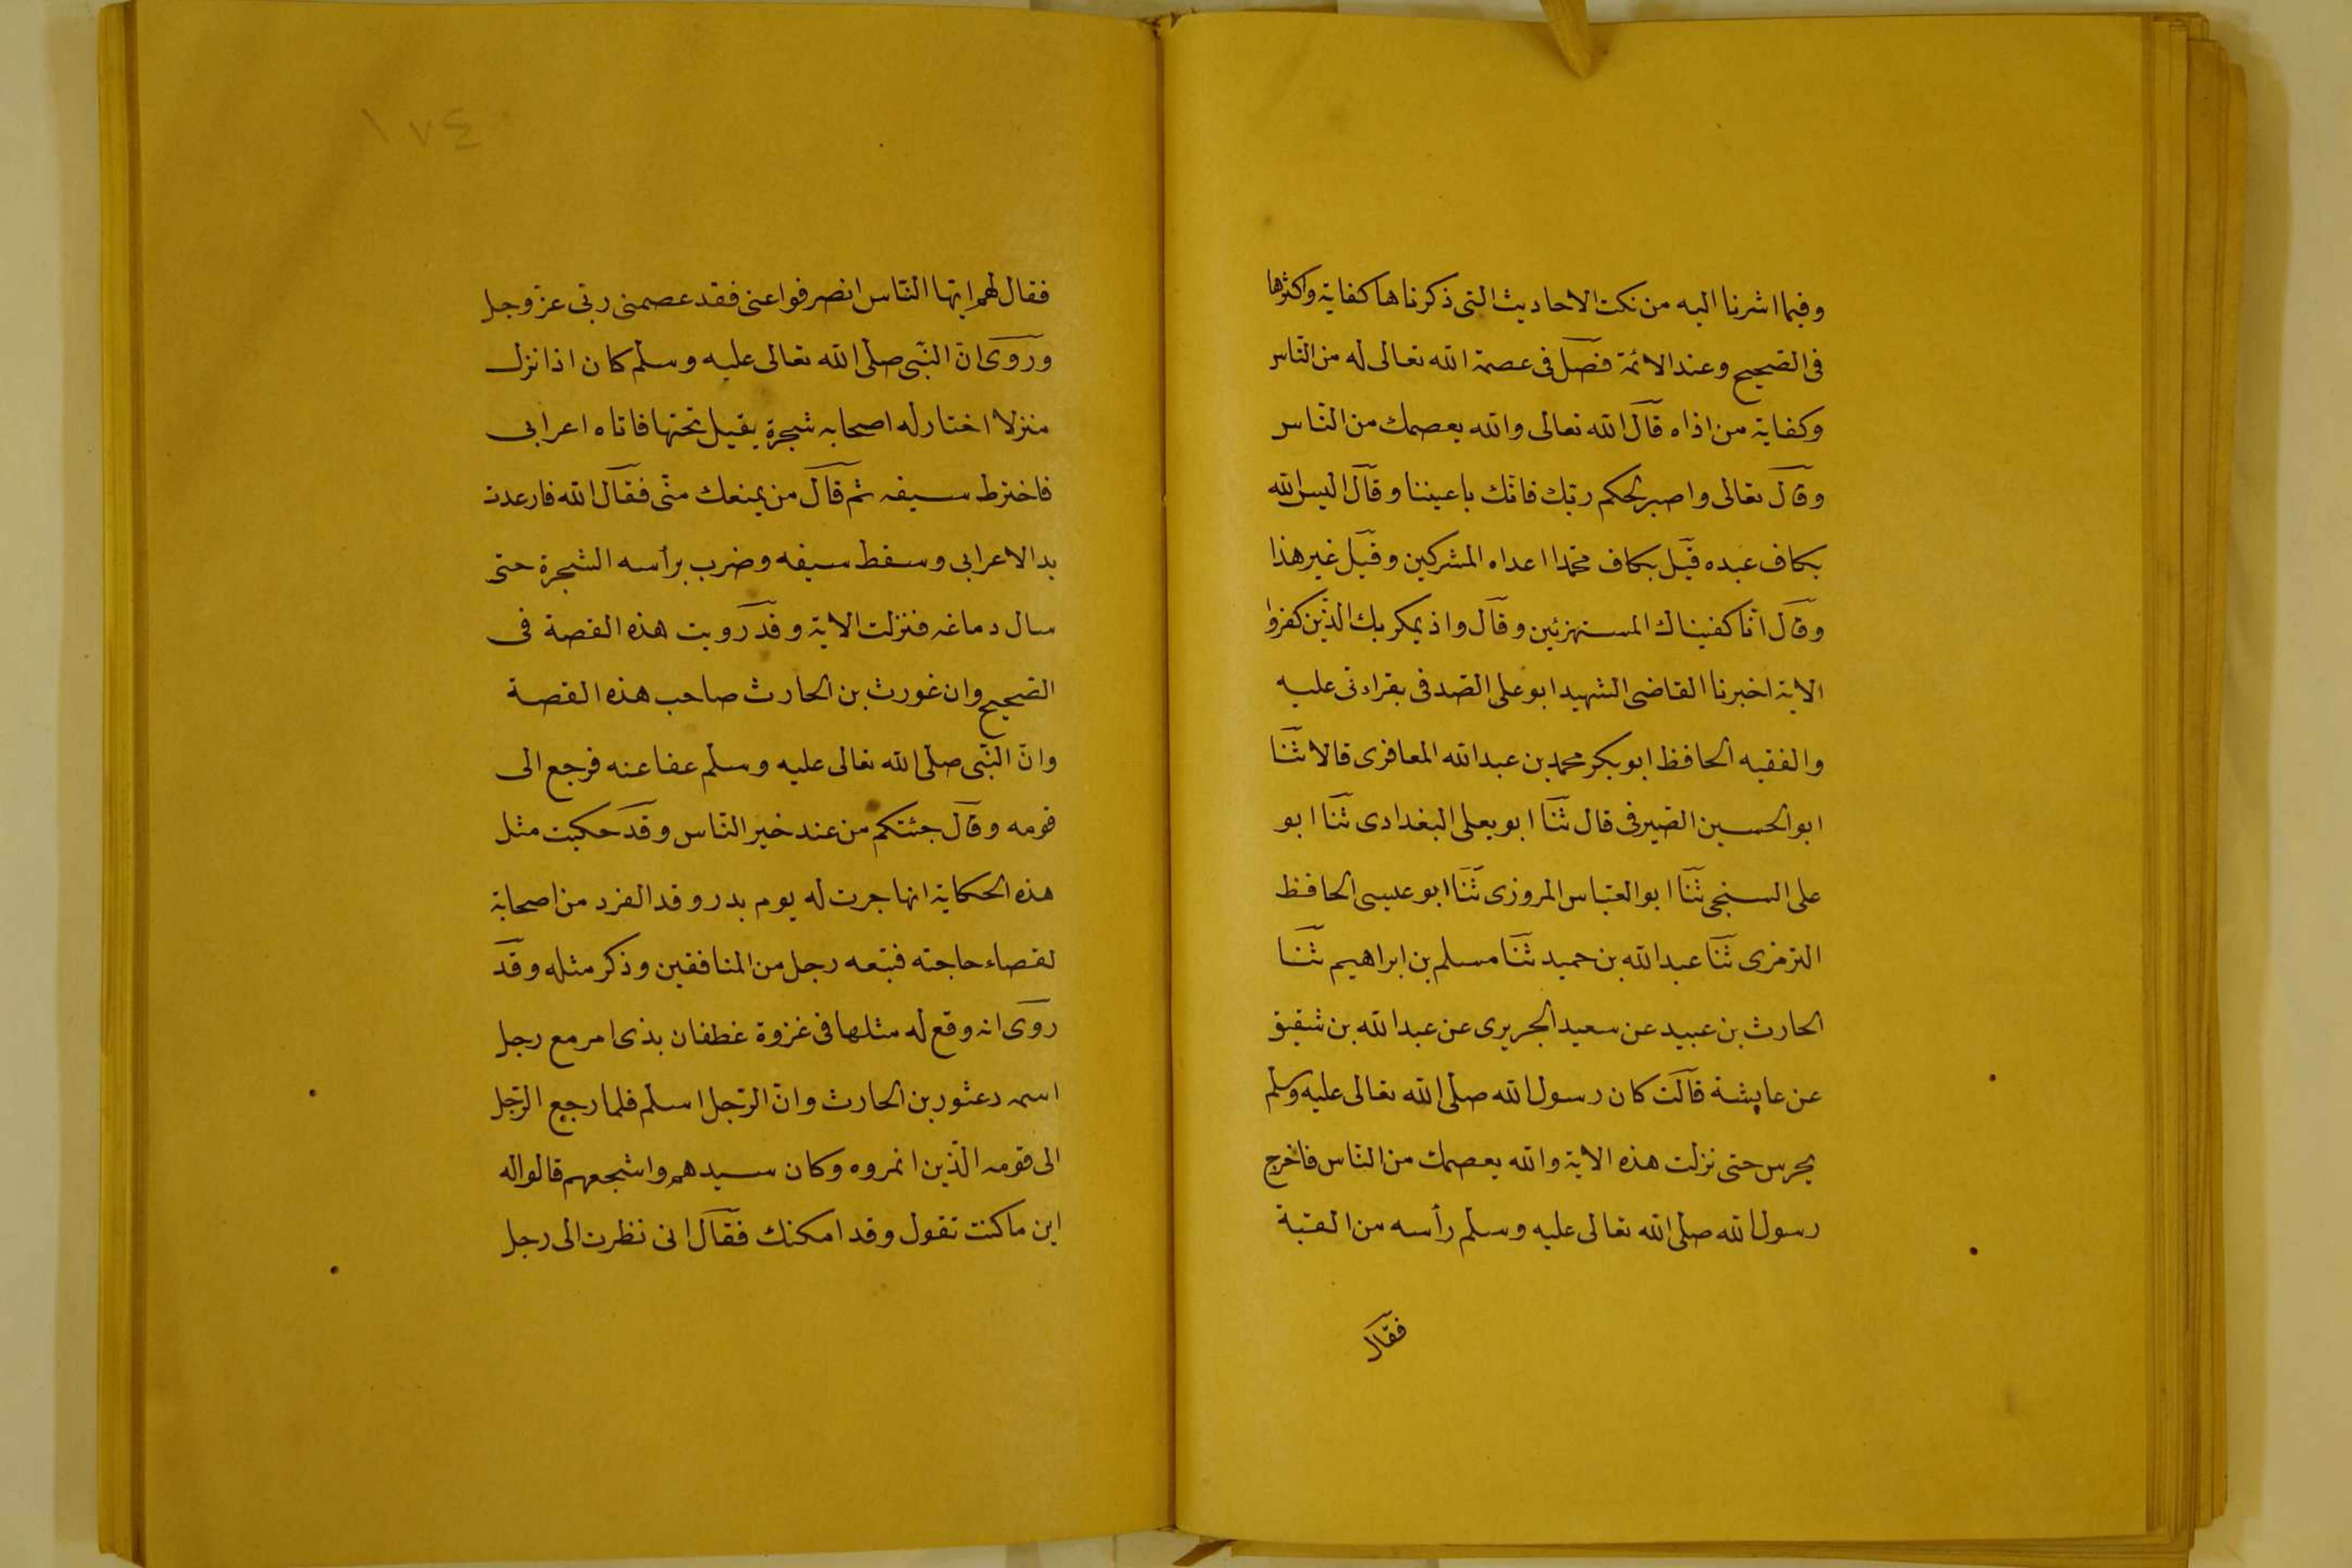 وفيما اشرنا اليه من نكت الاحاديث التى ذكرناها كفاية واكثرها
فى الصّحيح وعند الائمّة فصل فى عصمة الله تعالى له من النّاس
وكفاية من اذاه قال الله تعالى والله يعصمك من النّاس
وقال تعالى واصبر لحكم ربّك فانّك باعيننا وقال اليس الله
بكاف عبده قيل بكاف محمّدا اعداه المشركين وقيل غير هذا
وقال انّا كفيناك المستهزئين وقال واذ يمكر بك الّذين كفروا
الاية اخبرنا القاضى الشهيد ابو على الصّدفى بقراءتى عليه
والفقيه الحافظ ابو بكر محمد بن عبد الله المعافرى قالا ثنا
ابو الحسين الصّيرفى قال ثنا ابو يعلى البغدادى ثنا ابو
على السنجى ثنا ابو العبّاس المروزى ثنا ابو عيسى الحافظ
الترمزى ثنا عبد الله بن حميد ثنا مسلم بن ابراهيم ثنا
الحارث بن عبيد عن سعيد الجريرى عن عبد الله بن شقيق
عن عايشة قالت كان رسول الله صلّى الله تعالى عليه وسلّم
يحرس حتى نزلت هذه الاية والله يعصمك من النّاس فاخرج
رسول الله صلّى الله تعالى عليه وسلّم رأسه من القبّة
فقال
١٧٤
فقال لهم ايّها النّاس انصرفوا عنى فقد عصمنى ربّى عزّ وجل
وروى انّ النّبى صلّى الله تعالى عليه وسلّم كان اذا نزل
منزلا اختار له اصحابه شجرة يقيل تحتها فاتاه اعرابى
فاخترط سيفه ثم قال من يمنعك منّى فقال الله فارعدت
يد الاعرابى وسقط سيفه وضرب برأسه الشجرة حتى
سال دماغه فنزلت الاية وقد رويت هذه القصة فى
الصّحيح وان غورث بن الحارث صاحب هذه القصة
وانّ النّبى صلّى الله تعالى عليه وسلّم عفا عنه فرجع الى
قومه وقال جئتكم من عند خير النّاس وقد حكيت مثل
هذه الحكاية انها جرت له يوم بدر وقد انفرد من اصحابة
لقضاء حاجته فتبعه رجل من المنافقين وذكر مثله وقد
روى انه وقع له مثلها فى غزوة غطفان بذى امر مع رجل
اسمه دعثور بن الحارث وانّ الرّجل اسلم فلما رجع الرّجل
الى قومه الّذين اغروه وكان سيدهم واشجعهم قالوا له
اين ما كنت تقول وقد امكنك فقال انى نظرت الى رجل